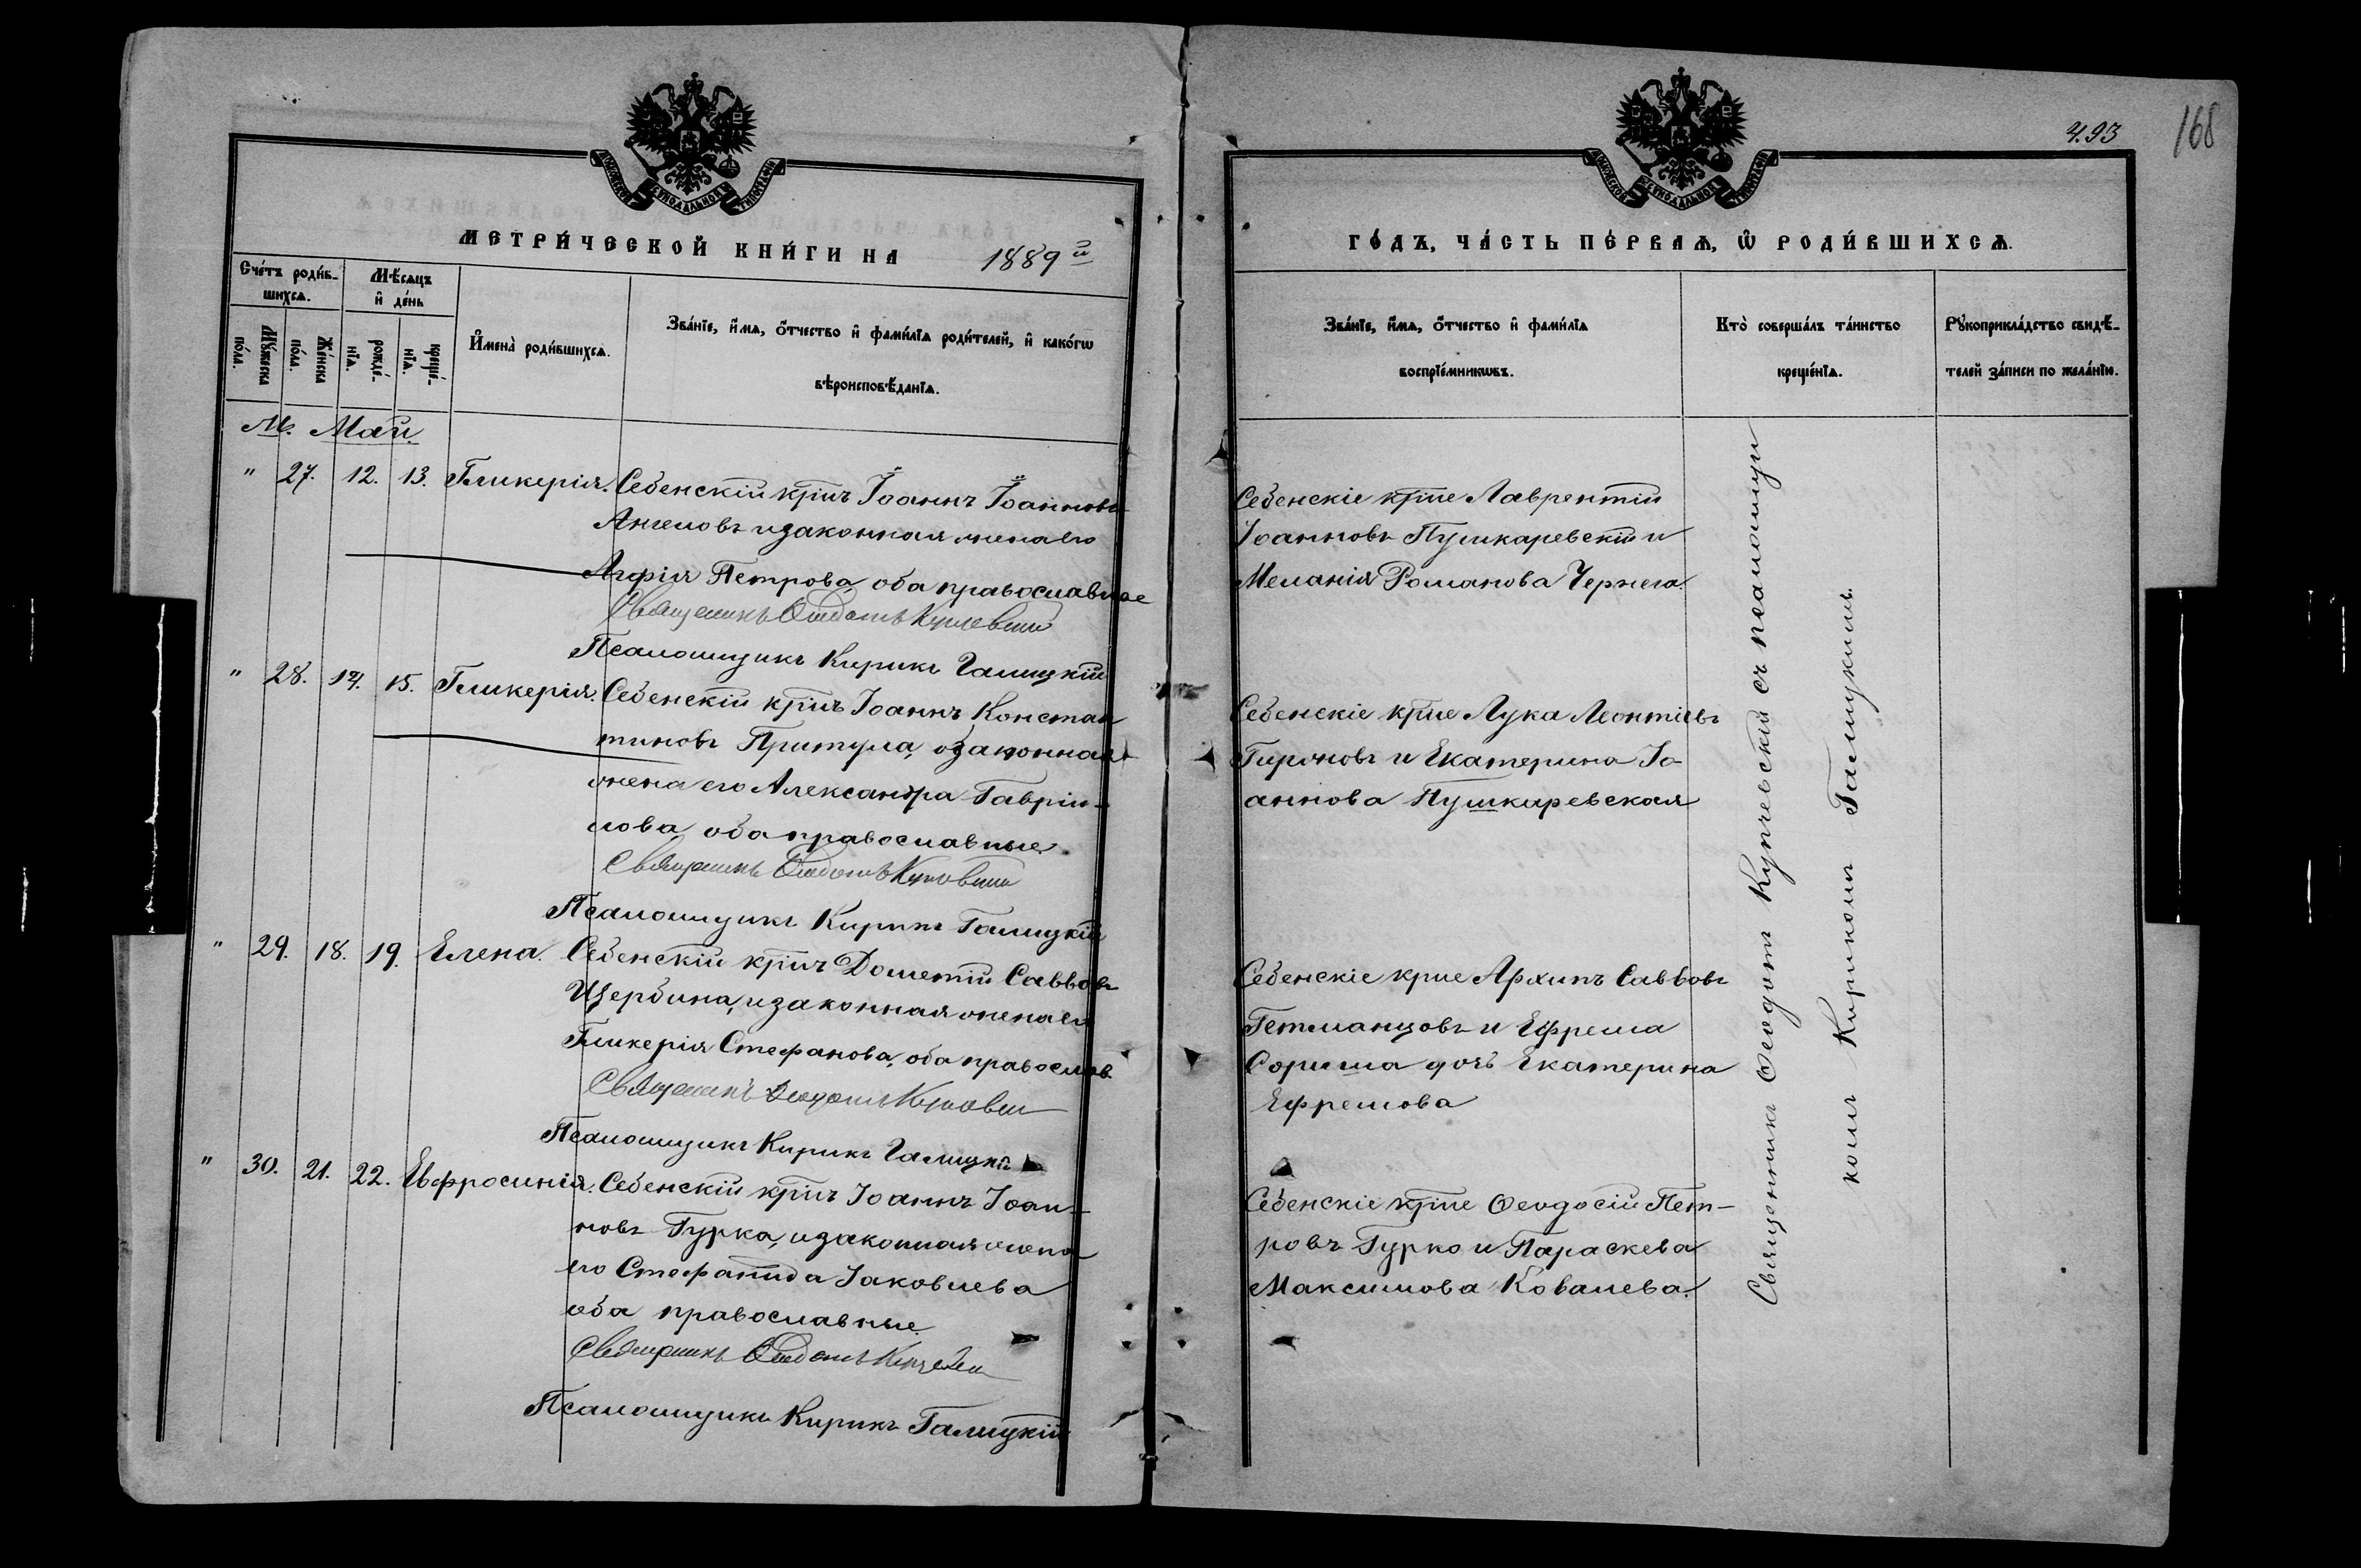 168
493
МЕТРИ́ЧЕСКОЙ КНИ́ГИ НА 1889 й
ГО́ДЪ, ЧА́СТЬ ПЕ́РВАѦ, Ѽ РОДИ́ВШИХСѦ.
Сче́тъ роди́в-
шихсѧ.
Мꙋ́жеска по́ла.
Же́нска по́ла.
Мѣ́сѧцъ и҆ де́нь
рожде́-нїѧ.
креще́-нїѧ.
И҆мена̀ роди́вшихсѧ.
Зва́нїе, и҆́мѧ, ѻ҆́тчество и҆ фами́лїѧ роди́телей, и҆ како́гѡ
вѣроисповѣ́данїѧ.
Зва́нїе, и҆́мѧ, ѻ҆́тчество и҆ фами́лїѧ
воспрїе́мникѡвъ.
Кто̀ соверша́лъ та́инство
креще́нїѧ.
Рꙋкоприкла́дство свидѣ́-
телей за́писи по жела́нїю.
М. Май.
" 27. 12. 13. Гликерія. Себенскій кр̅нъ Іоаннъ Іоанновъ
Ангеловъ и законная жена его
Агафія Петрова, оба православные
Священникъ Ѳеодотъ Купчевскій
Псаломщикъ Кирикъ Галицкій
Себенскіе кр̅не Лаврентій
Іоанновъ Пушкаревскій и
Меланія Романова Чернега.
" 28. 14. 15. Гликерія. Себенскій кр̅нъ Іоаннъ Констан
тиновъ Притула, и законная
жена его Александра Гавріи-
лова, оба православные.
Священникъ Ѳеодотъ Купчевскій
Псаломщикъ Кирикъ Галицкій
Себенскіе кр̅не Лука Леонтіевъ
Гиржовъ и Екатерина Іо-
аннова Пушкаревская
" 29. 18. 19. Елена. Себенскій кр̅нъ Дометій Саввовъ
Щербина, и законная жена его
Гликерія Стефанова, оба православ.
Священникъ Ѳеодотъ Купчевскій
Псаломщикъ Кирикъ Галицкій
Себенскіе крне Архипъ Саввовъ
Гетманцовъ и Ефрема
дочь Екатерина
Ефремова
" 30. 21. 22. Евфросинія. Себенскій кр̅нъ Іоаннъ Іоан-
новъ Гурка, и законная жена
его Стефанида Іаковлева
оба православные.
Священникъ Ѳеодотъ Купчевскій
Псаломщикъ Кирикъ Галицкій
Себенскіе кр̅не Ѳеодосій Пет-
ровъ Гурко и Параскева
Максимова Ковалева.
Священникъ Ѳеодотъ Купчевскій съ псаломщи
комъ Кирикомъ Галицкимъ.